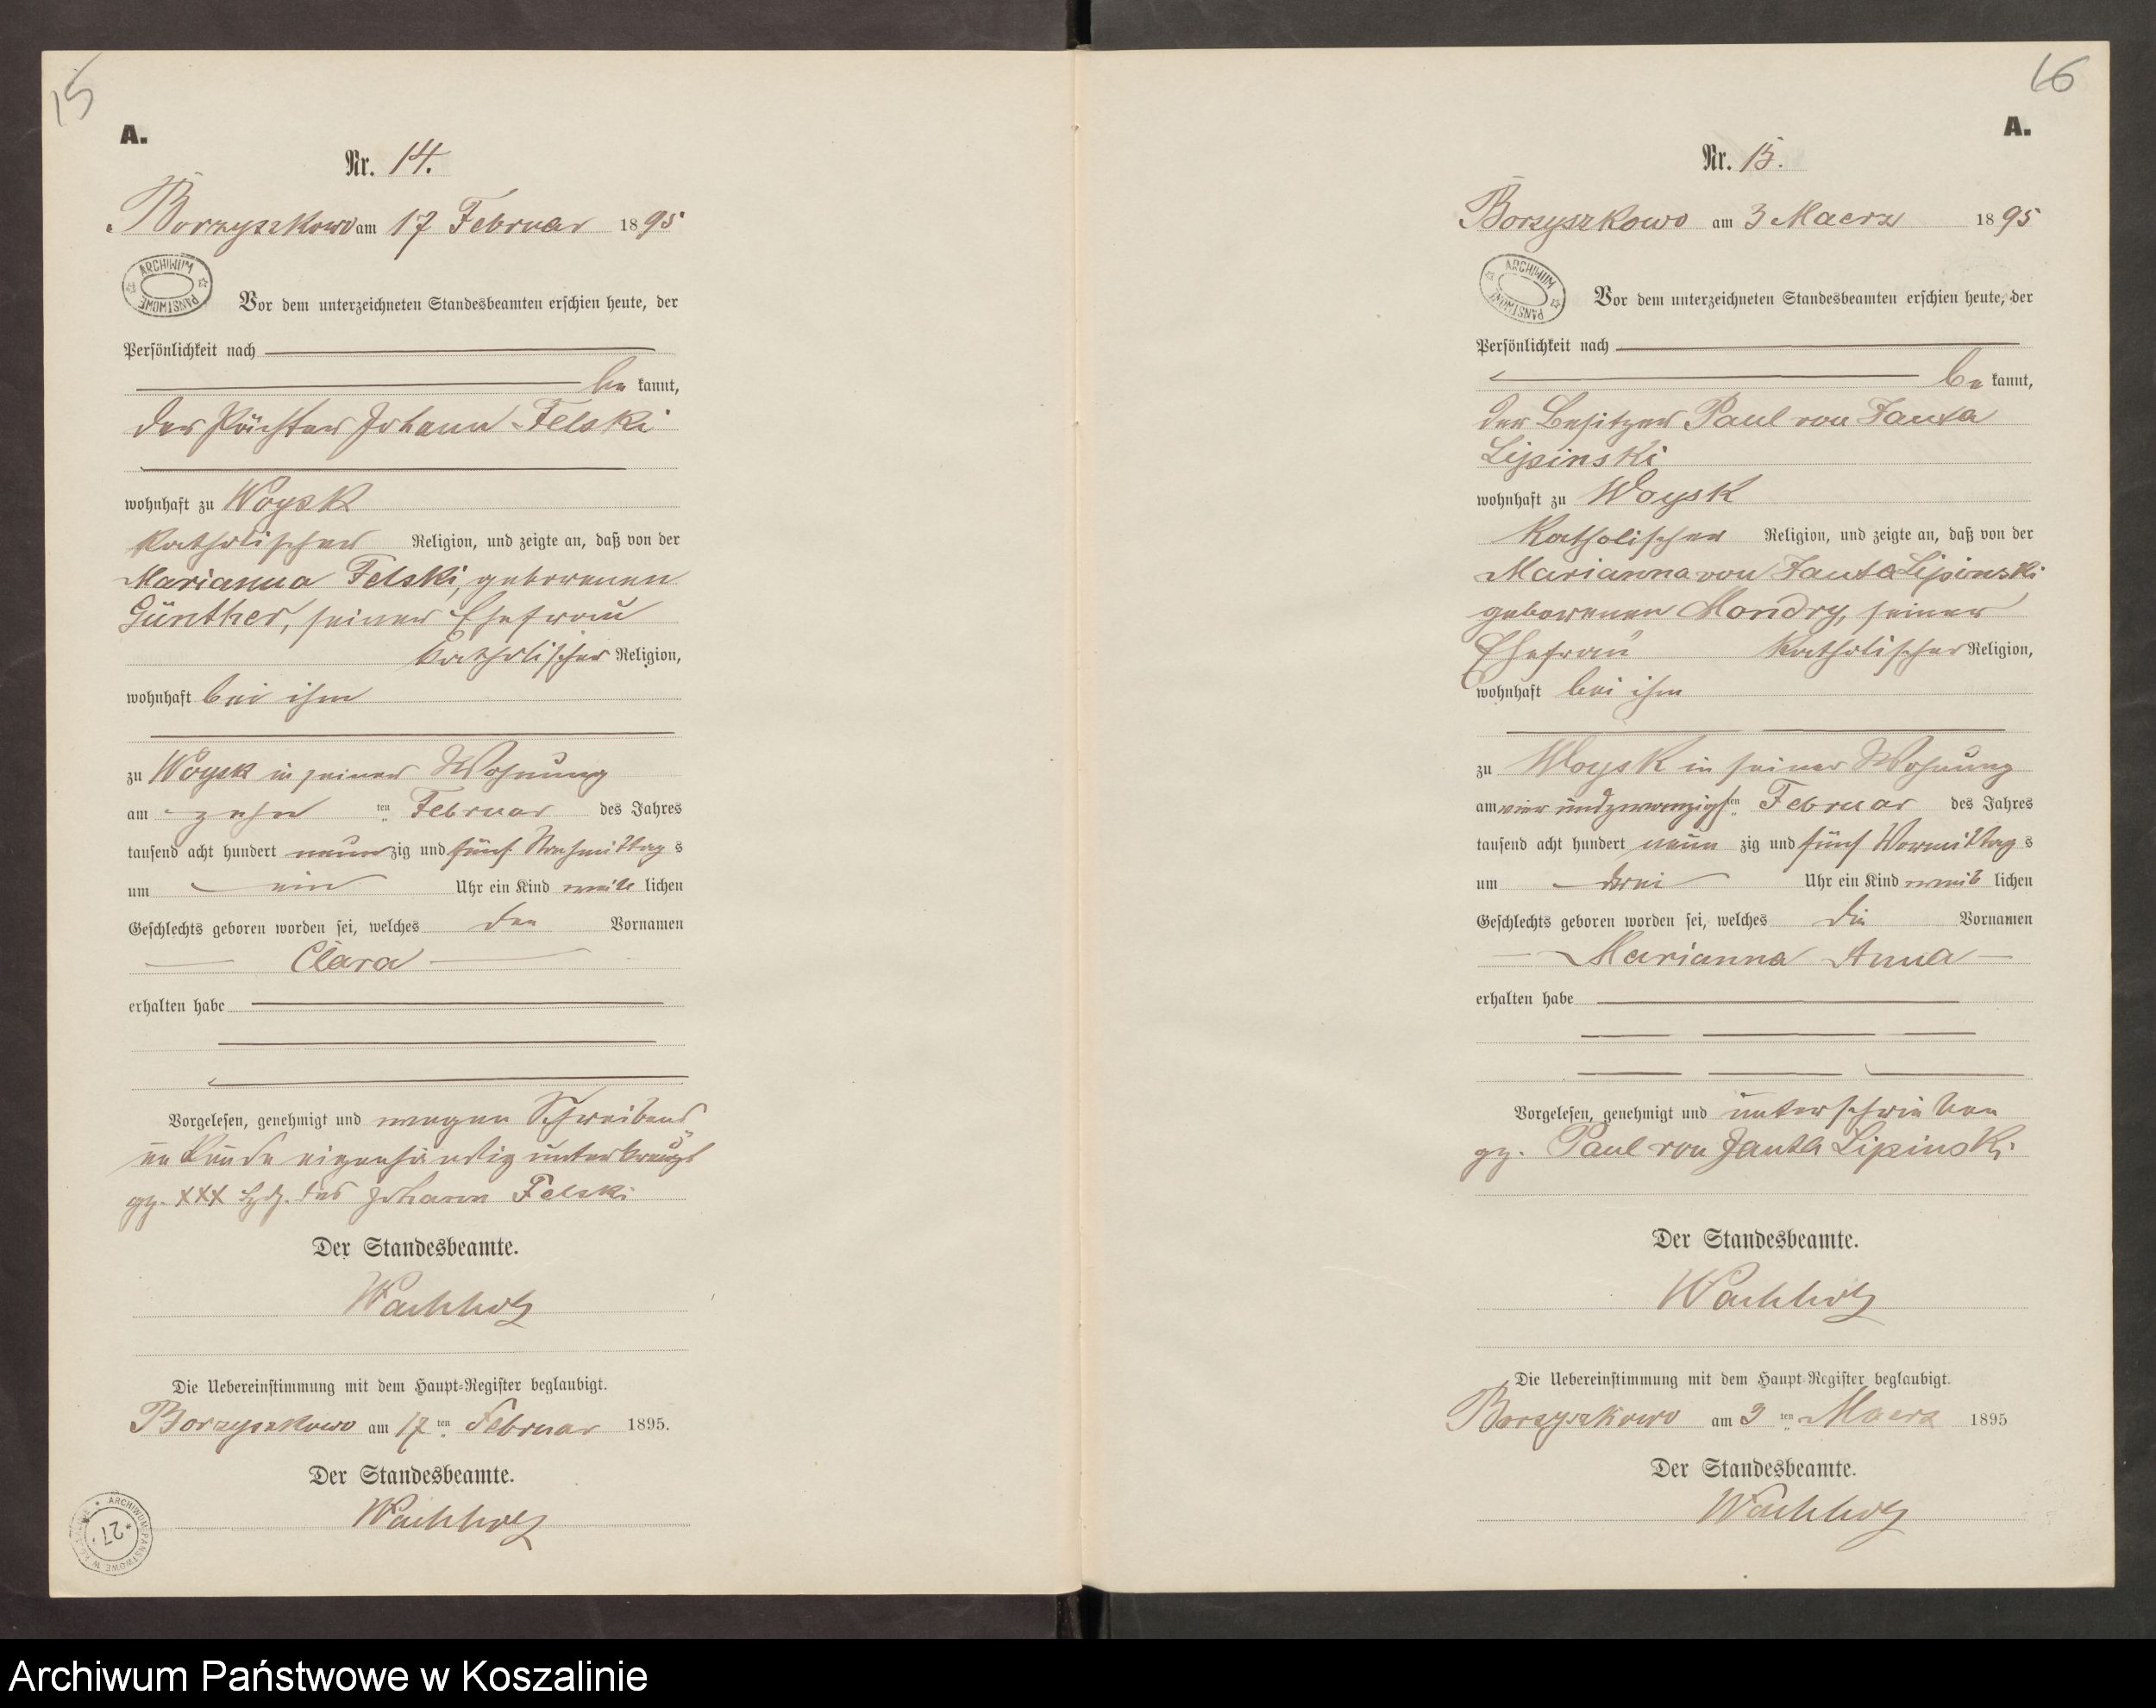 15
A.
Nr. 14.
Borzyszkowo am 17 Februar 1895
ARCHIWUM PAŃSTWOWE
Vor dem unterzeichneten Standesbeamten erschien heute, der
Persönlichkeit nach
be kannt,
der Pächter Johann Felski
wohnhaft zu Woysk
katholischer Religion, und zeigte an, daß von der
Marianna Felski, geborenen
Günther, seiner Ehefrau
katholischer Religion,
wohnhaft bei ihm
zu Woysk in seiner Wohnung
am zehn ten Februar des Jahres
tausend acht hundert neun zig und fünf Nachmittag s
um ein Uhr ein Kind weib lichen
Geschlechts geboren worden sei, welches den Vornamen
Clara
erhalten habe
Vorgelesen, genehmigt und wegen Schreibens
unkunde eigenhändig unterkreuzt
gz. XXX Hdz. des Johann Felski
Der Standesbeamte.
Wachholz
Die Uebereinstimmung mit dem Haupt-Register beglaubigt.
Borzyszkowo am 17 ten Februar 1895.
Der Standesbeamte.
Wachholz
ARCHIWUM PAŃSTWOWE W
27
16
A.
Nr. 15.
Borzyszkowo am 3 Maerz 1895
ARCHIWUM PAŃSTWOWE
Vor dem unterzeichneten Standesbeamten erschien heute, der
Persönlichkeit nach
be kannt,
der Besitzer Paul von Janta
Lipinski
wohnhaft zu Woysk
katholischer Religion, und zeigte an, daß von der
Marianna von Janta Lipinski
geborenen Mondry, seiner
Ehefrau katholischer Religion,
wohnhaft bei ihm
zu Woysk in seiner Wohnung
am vier und zwanzigs ten Februar des Jahres
tausend acht hundert neun zig und fünf Vormittag s
um drei Uhr ein Kind weib lichen
Geschlechts geboren worden sei, welches die Vornamen
Marianna Anna
erhalten habe
Vorgelesen, genehmigt und unterschrieben
gz. Paul von Janta Lipinski
Der Standesbeamte.
Wachholz
Die Uebereinstimmung mit dem Haupt-Register beglaubigt.
Borzyszkowo am 3 ten Maerz 1895
Der Standesbeamte.
Wachholz
Archiwum Państwowe w Koszalinie